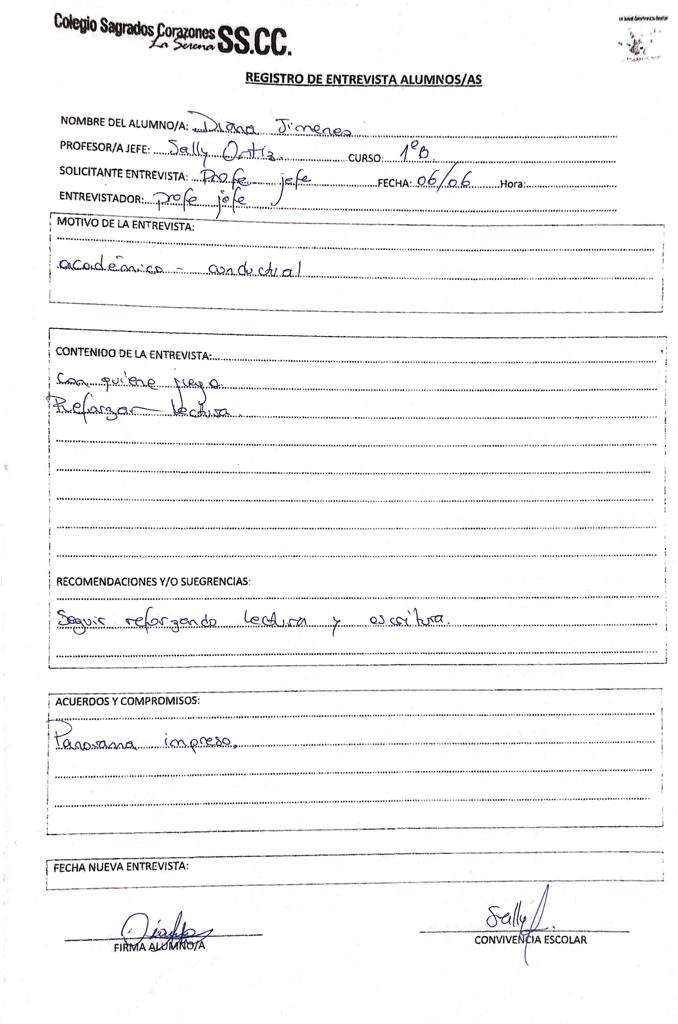 Colegio Sagrados Corazones
La Serena SS.CC.
REGISTRO DE ENTREVISTA ALUMNOS/AS
NOMBRE DEL ALUMNO/A: Diana Jimenes
PROFESOR/A JEFE: Sally Ortiz CURSO: 1°B
SOLICITANTE ENTREVISTA: Profe jefe FECHA: 06/06 Hora:
ENTREVISTADOR: profe jefe
MOTIVO DE LA ENTREVISTA:
académico - conductual
CONTENIDO DE LA ENTREVISTA:
Con quiene juega
Reforzar lectura.
RECOMENDACIONES Y/O SUEGRENCIAS:
Seguir reforzando lectura y escritura.
ACUERDOS Y COMPROMISOS:
Panorama impreso.
FECHA NUEVA ENTREVISTA:
Sally
FIRMA ALUMNO/A CONVIVENCIA ESCOLAR